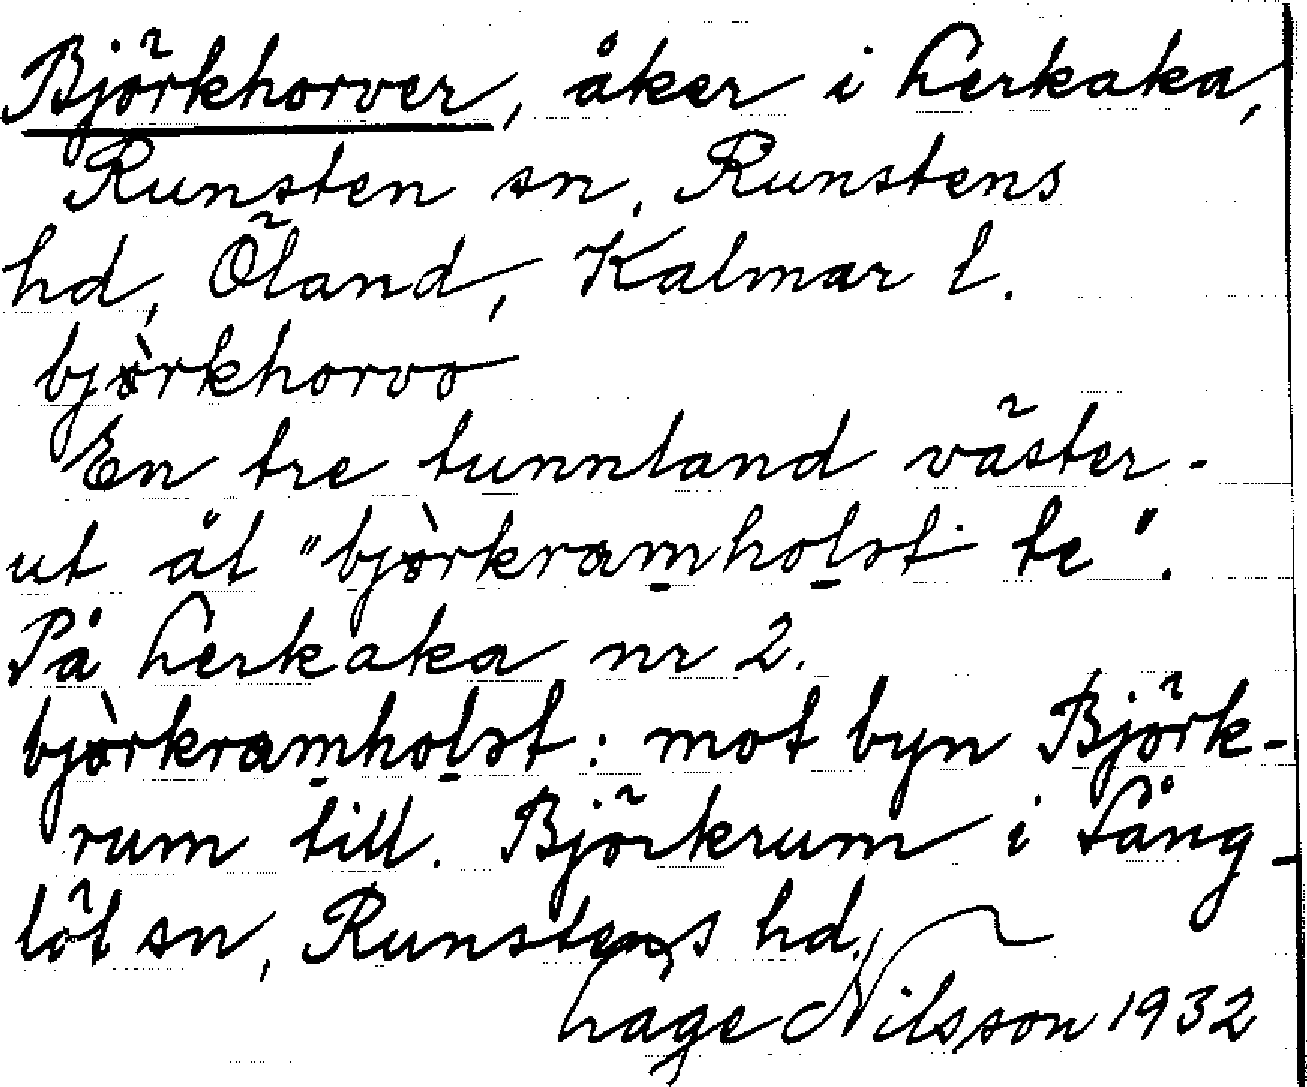 Björkhorver, åker i Lerkaka,
Runsten sn, Runstens
hd, Öland, Kalmar l.
bjòrkhorvo
En tre tunnland väster-
ut åt "bjòrkramholst te".
På Lerkaka nr 2.
bjòrkramholst: mot byn Björk-
rum till. Björkrum i Lång-
löt sn, Runstens hd.
Lage Nilsson 1932